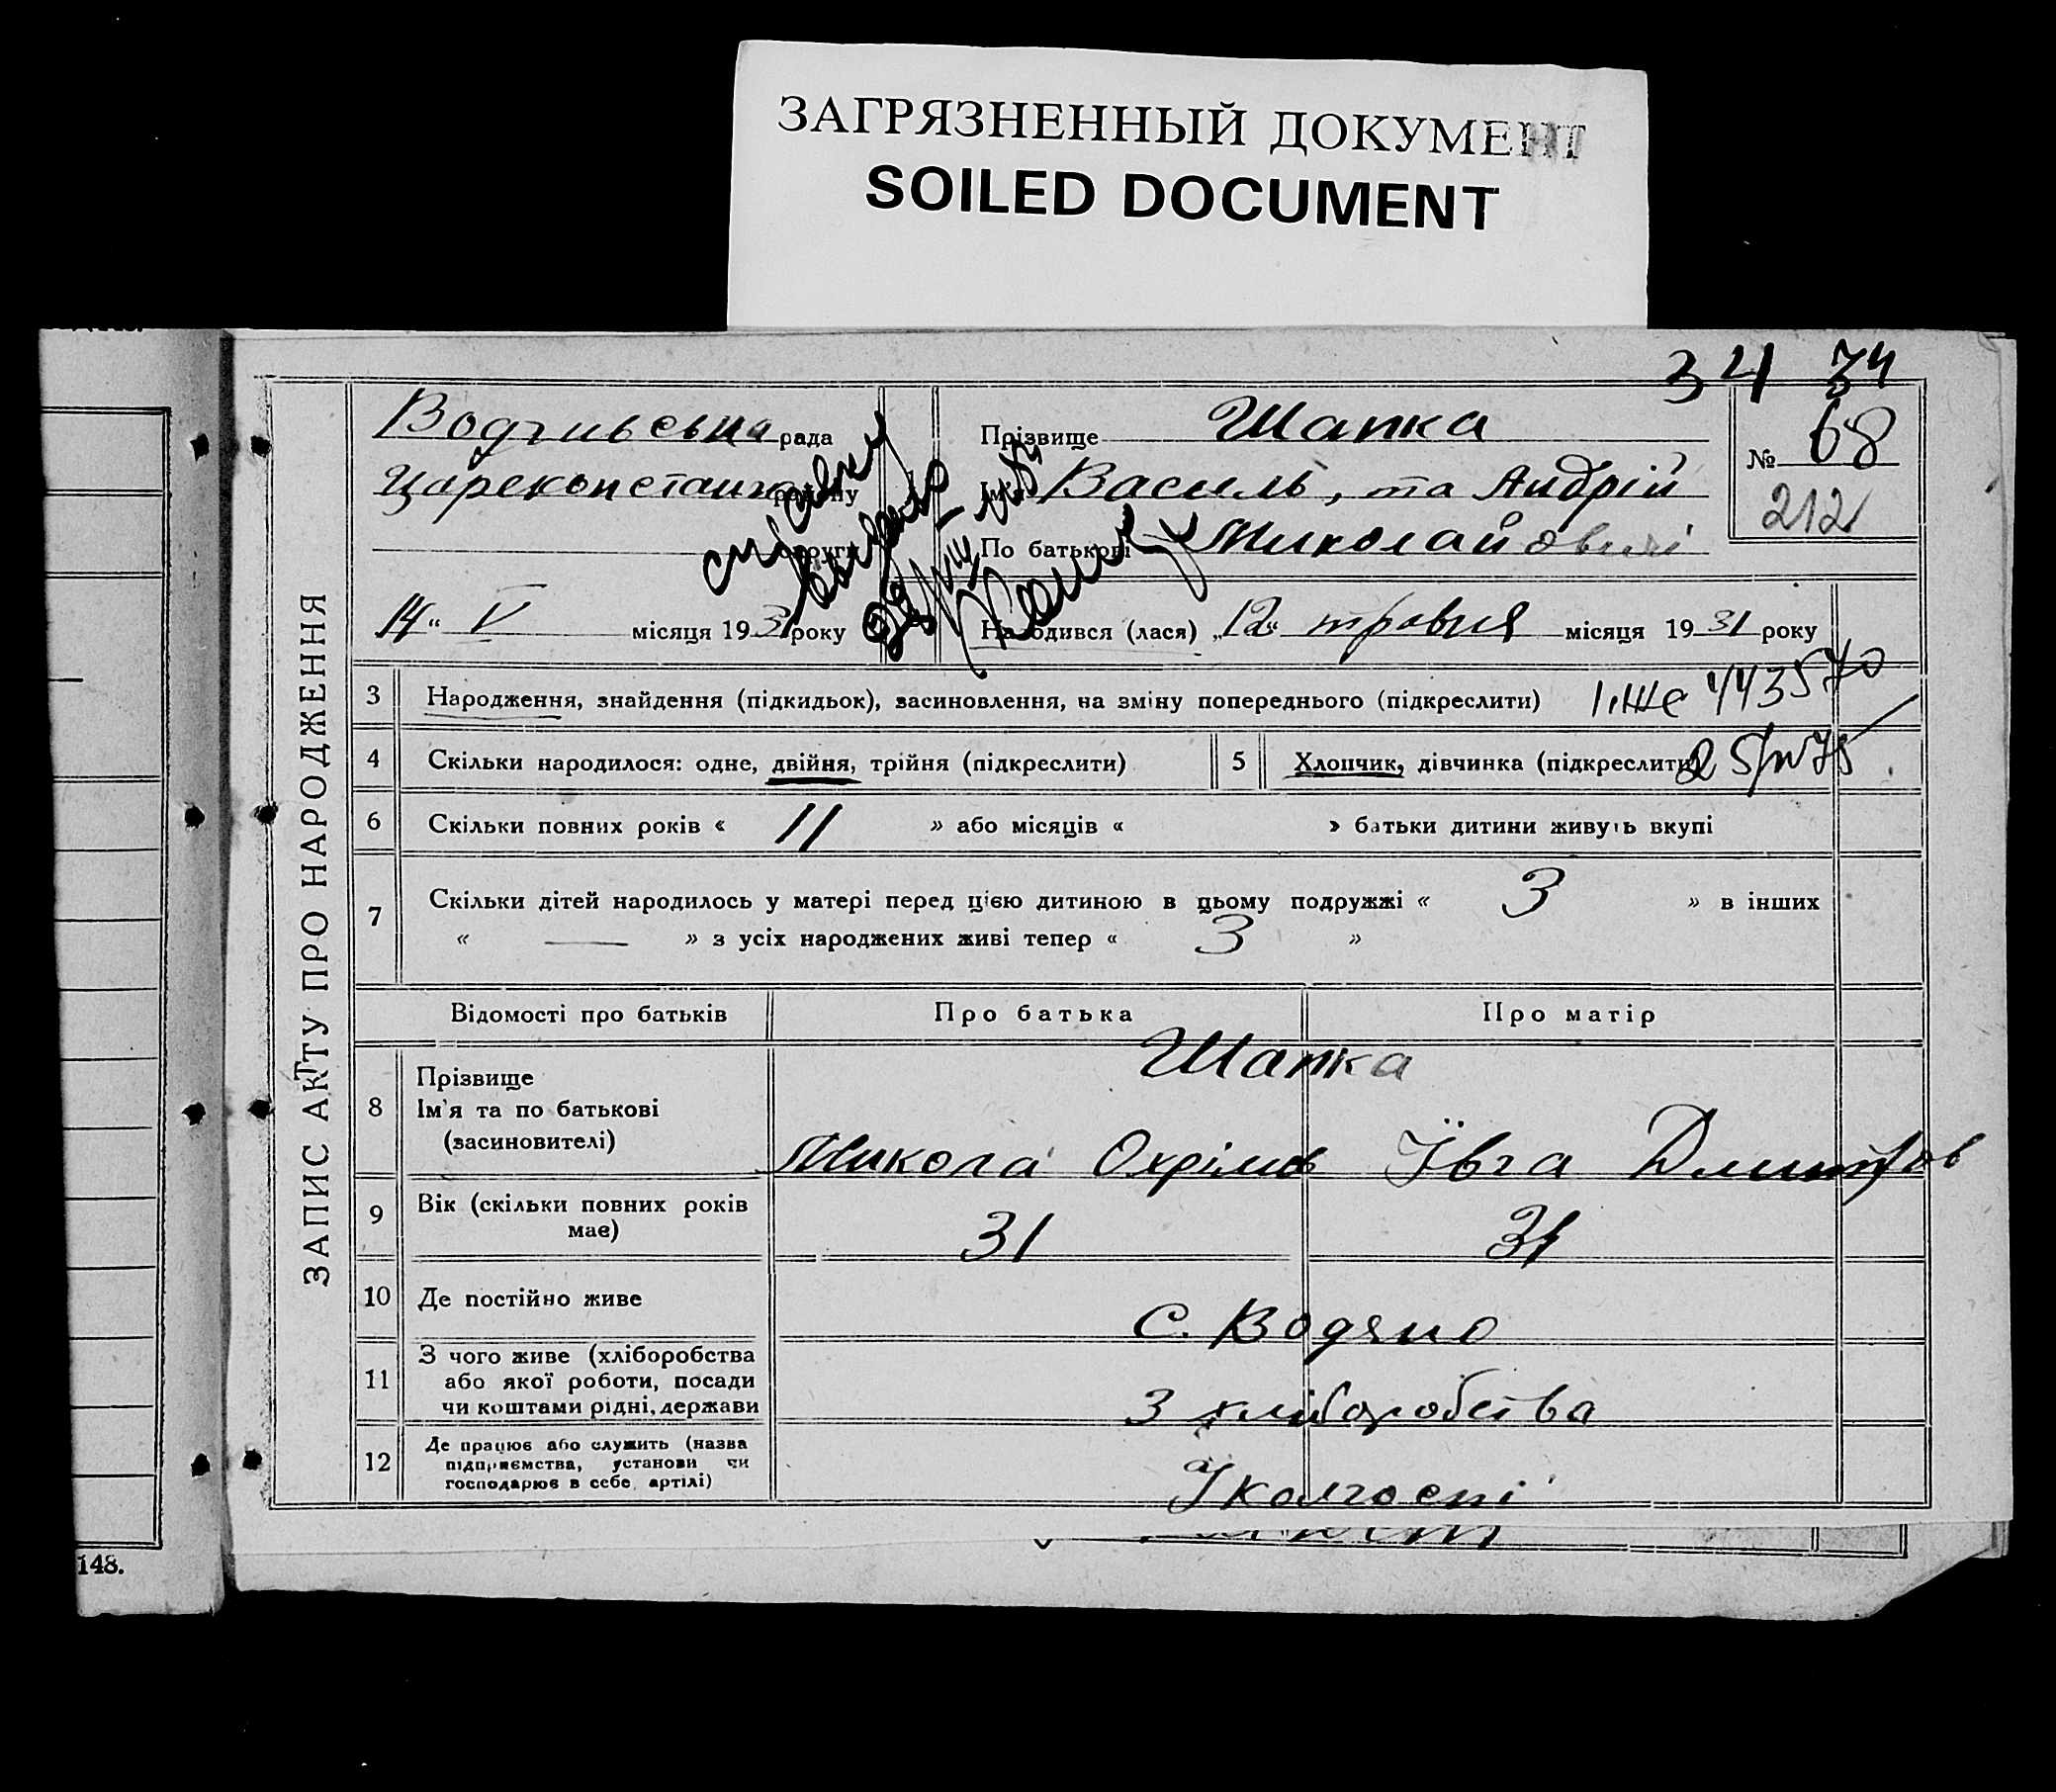 ЗАГРЯЗНЕННЫЙ ДОКУМЕНТ
SOILED DOCUMENT
34 34
ЗАПИС АКТУ ПРО НАРОДЖЕННЯ
рада
району
округи
14 „ V місяця 1931 року
справку
Прізвище Шапка
Ім'я Василь, та Андрій
По батькові Миколайовичі
№ 68
212
Народився (лася) „12“ травня місяця 1931 року
3 Народження, знайдення (підкидьок), засиновлення, на зміну попереднього (підкреслити)
443570
4 Скільки народилося: одне, двійня, трійня (підкреслити) 5 Хлопчик, дівчинка (підкреслити)
6 Скільки повних років « 11 » або місяців « » батьки дитини живуть вкупі
7 Скільки дітей народилось у матері перед цією дитиною в цьому подружжі « 3 » в інших
« — » з усіх народжених живі тепер « 3 »
Відомості про батьків Про батька Про матір
8 Прізвище Шапка
Ім'я та по батькові
(засиновителі) Микола Охрімов Ївга Дмитров
9 Вік (скільки повних років
має) 31 31
10 Де постійно живе с. Водяно
11 З чого живе (хліборобства
або якої роботи, посади
чи коштами рідні, держави З хліборобства
12 Де працює або служить (назва
підприємства, установи чи
господарює в себе, артілі) У колгоспі
148.